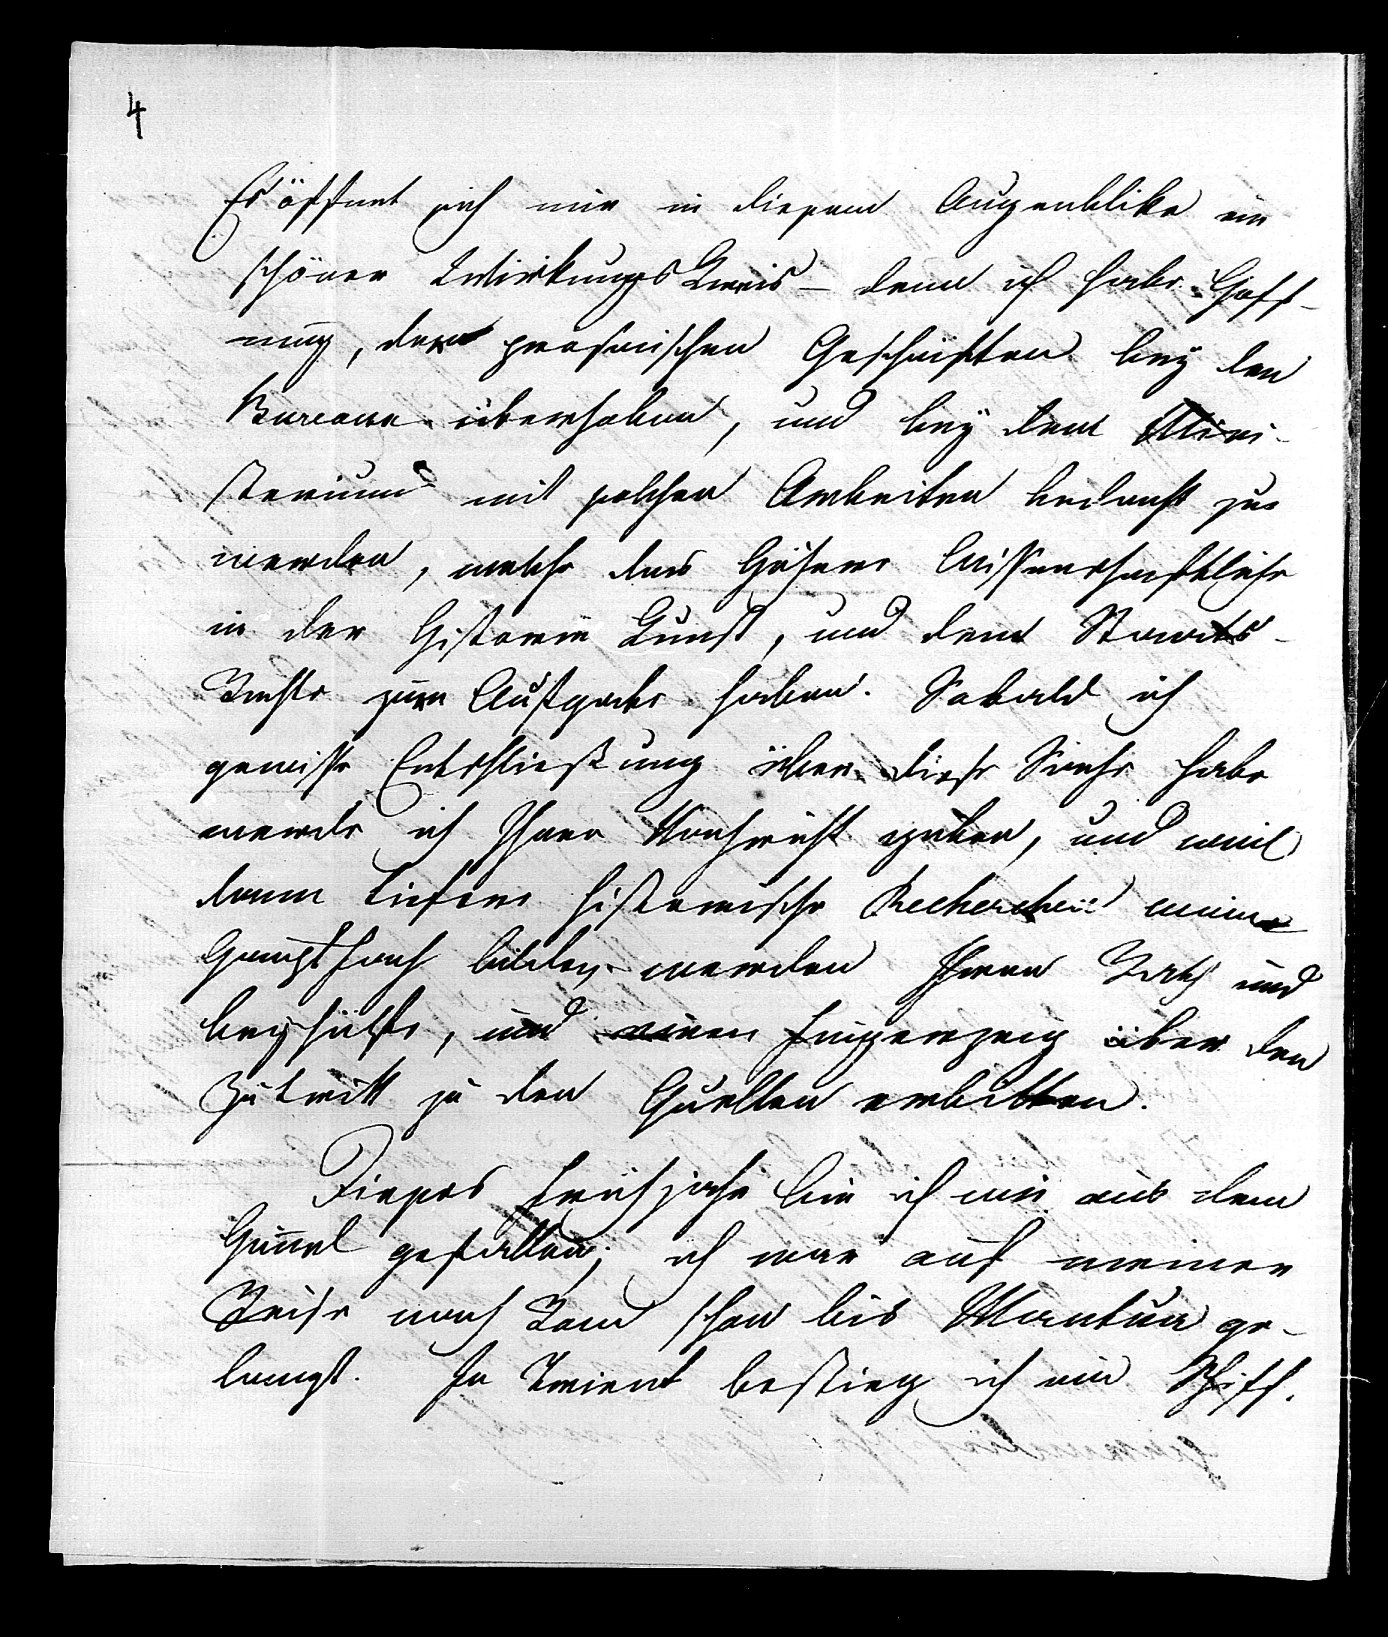 4
Er öffnet sich mir in diesem Augenblike ein
schöner WirkungsKreis – denn ich habe Hoff-
nung, den prosaischen Geschäften bey den
Bureaux überhoben, und bey dem Mini-
sterium mit solchen Arbeiten bedacht zu
werden, welche das Höhere Wissenschaftliche
in der Historie Kunst, und dem Staats-
Rechte zur Aufgabe haben. Sobald ich
gewisse Entschließung über diese Sache habe
werde ich Ihnen Nachricht geben, und weil
dann tiefere historische Recherchen meine
Hauptfach bilden werden Ihren Rath und
beyhülfe, und einen Fingerzeig über den
Zutritt zu den Quellen erbitten.
Dieses Frühjahr bin ich wie aus dem
Himel gefallen; ich war auf meiner
Reise nach Rom schon bis Mantua ge-
langt. In Trient bestieg ich ein Schiff.